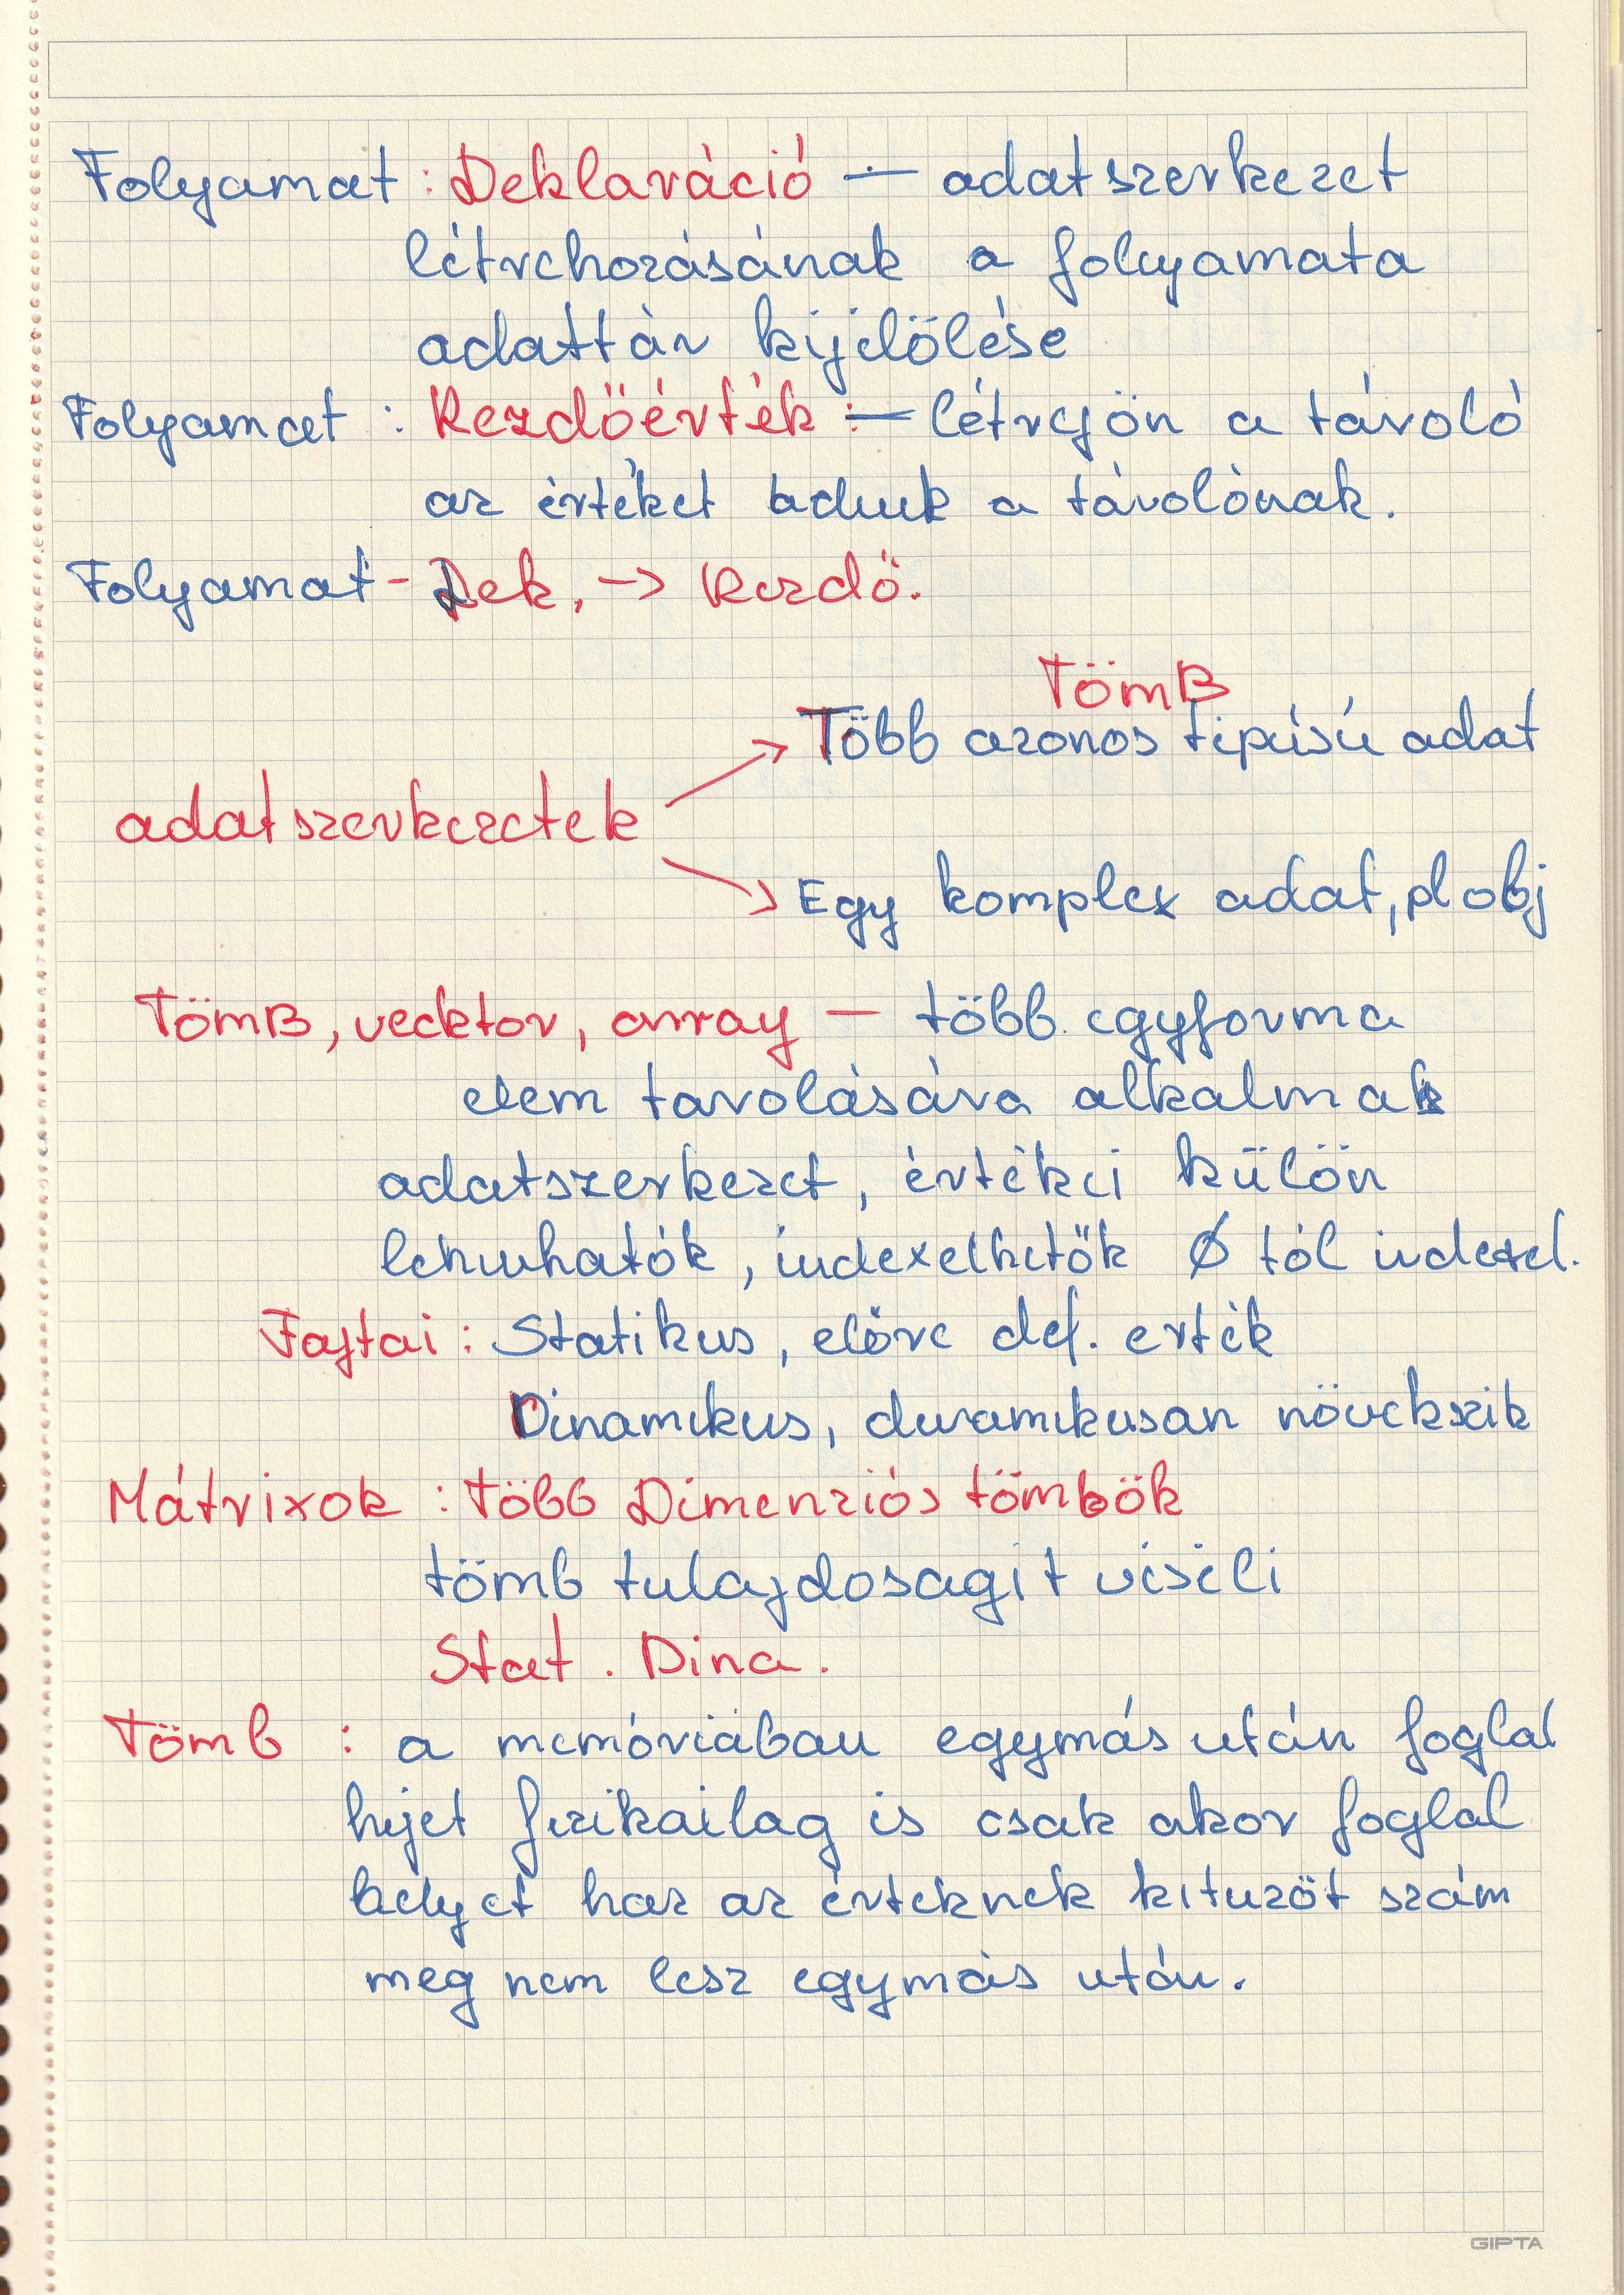 Folyamat : Deklaráció — adatszerkezet
létrehozásának a folyamata
adattár kijelölése
Folyamat : Kezdőérték :— létrejön a tároló
az értéket adunk a tárolónak.
Folyamat - Dek. -> Kezdő.
TömB
Több azonos tipúsú adat
adatszerkezetek
Egy komplex adat, pl obj
TömB, vecktor, array — több egyforma
elem tarolására alkalmas
adatszerkezet, értékei külön
lehívhatók, indexelhetők Ø tól indexel.
Fajtai : Statikus, előre def. erték
Dinamikus, dinamikusan növekszik
Mátrixok : Több Dimenziós tömbök
tömb tulajdosagit viseli
Stat. Dina.
Tömb : a memóriában egymás után foglal
hejet fizikailag is csak akor foglal
helyet haz az érteknek kituzöt szám
meg nem lesz egymás után.
GIPTA